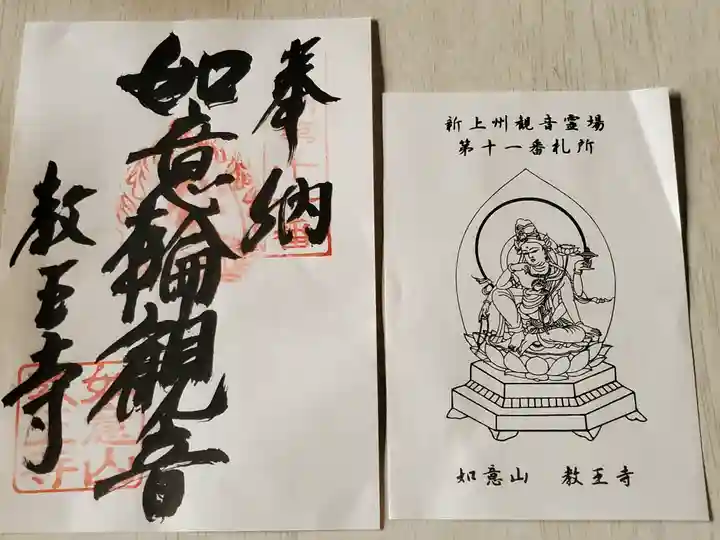 奉納
如意輪観音
教王寺
如意山
教王寺
新上州観音霊場
第十一番札所
如意山 教王寺